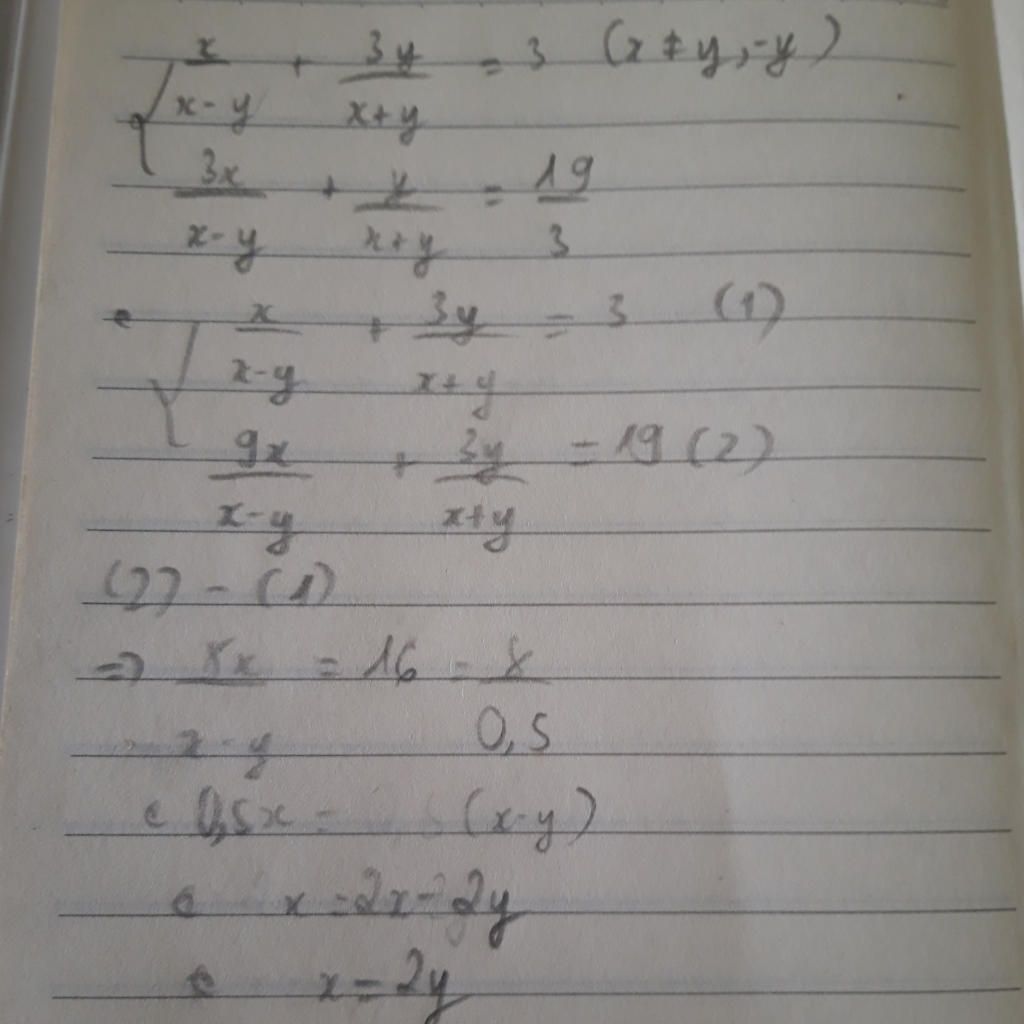 x/(x-y) + 3y/(x+y) = 3 (x ≠ y, -y)
3x/(x-y) + y/(x+y) = 19/3
x/(x-y) + 3y/(x+y) = 3 (1)
9x/(x-y) + 3y/(x+y) = 19 (2)
(2) - (1)
=> 8x/(x-y) = 16 = 8/0,5
0,5x = (x-y)
x = 2x - 2y
x = 2y